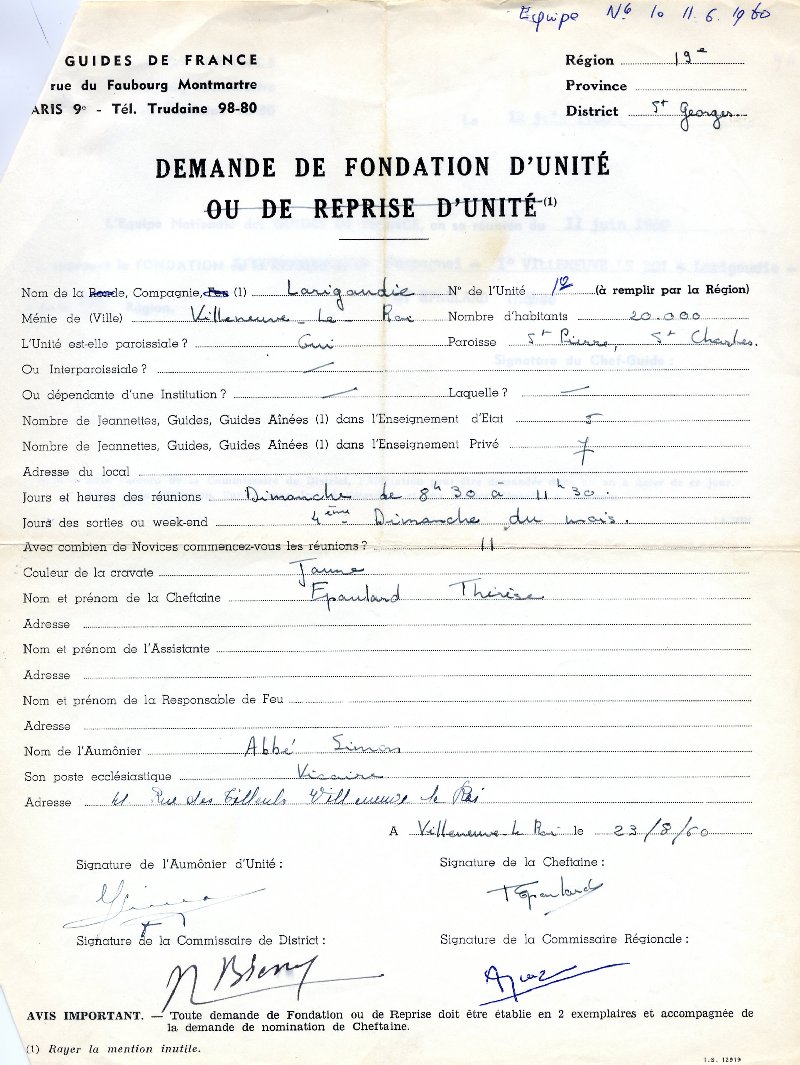 Equipe Nº 10 11.6.1960
GUIDES DE FRANCE
rue du Faubourg Montmartre
ARIS 9e - Tél. Trudaine 98-80
Région 19e
Province
District St Georges
DEMANDE DE FONDATION D'UNITÉ
OU DE REPRISE D'UNITÉ (1)
Nom de la Ronde, Compagnie, Feu (1) Larigaudie N° de l'Unité 12 (à remplir par la Région)
Ménie de (Ville) Villeneuve-Le Roi Nombre d'habitants 20.000
L'Unité est-elle paroissiale ? Oui Paroisse St Pierre, St Charles.
Ou Interparoissiale ? —
Ou dépendante d'une Institution ? — Laquelle ? —
Nombre de Jeannettes, Guides, Guides Aînées (1) dans l'Enseignement d'Etat 5
Nombre de Jeannettes, Guides, Guides Aînées (1) dans l'Enseignement Privé 7
Adresse du local
Jours et heures des réunions Dimanche de 8h30 à 11h30.
Jours des sorties ou week-end 4ème Dimanche du mois.
Avec combien de Novices commencez-vous les réunions ? 11
Couleur de la cravate Jaune
Nom et prénom de la Cheftaine Epaulard Thérèse
Adresse
Nom et prénom de l'Assistante
Adresse
Nom et prénom de la Responsable de Feu
Adresse
Nom de l'Aumônier Abbé Simon
Son poste ecclésiastique Vicaire
Adresse 41 Rue des Tilleuls Villeneuve le Roi
A Villeneuve-Le Roi le 23/8/60
Signature de l'Aumônier d'Unité :
Signature de la Cheftaine :
TEpaulard
Signature de la Commissaire de District :
Signature de la Commissaire Régionale :
AVIS IMPORTANT. — Toute demande de Fondation ou de Reprise doit être établie en 2 exemplaires et accompagnée de
la demande de nomination de Cheftaine.
(1) Rayer la mention inutile.
I.S. 12919